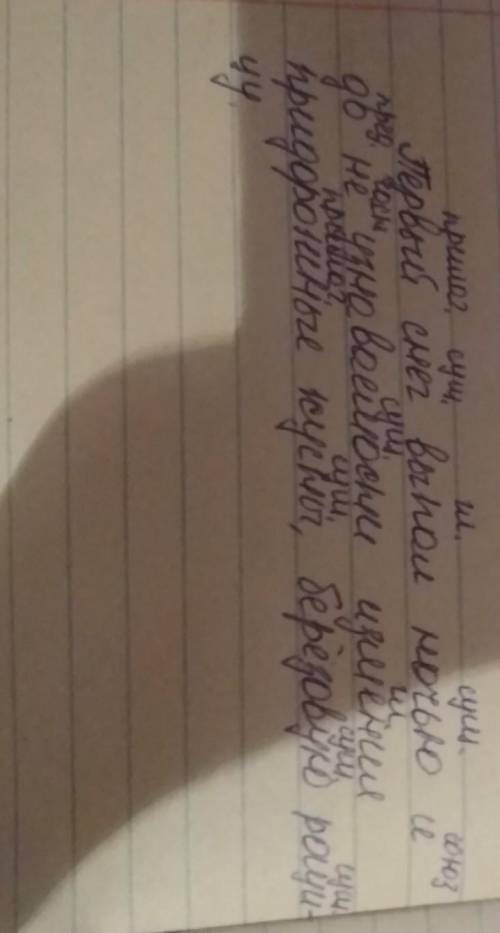 прилаг. сущ. гл. сущ. союз
Первый снег выпал ночью и
пред. част. сущ. гл.
до не узноваемости изменил
прилаг. сущ. сущ. сущ.
придорожные кусты, берёзовую рощи-
цу.